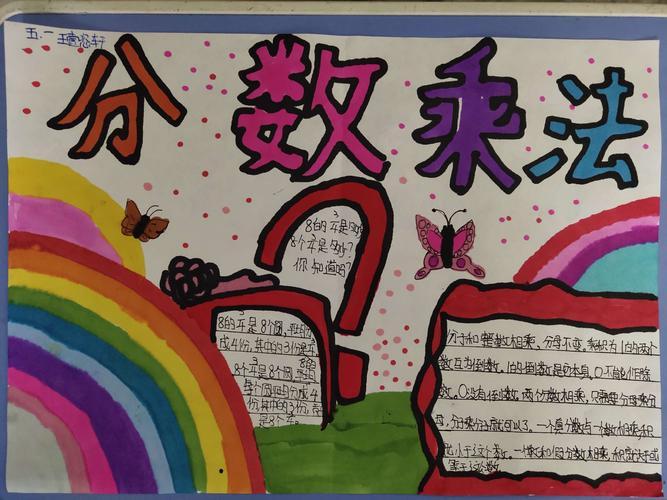 五.一
分数乘法
8的3/4是多少?
8个3/4是多少?
你知道吗?
8的3/4是8个圆,平均
成4份,其中的3份是
8个3/4是8个圆
每个圆平均分成4
份,其中的3份,
是8个3/4
分子和整数相乘,分母不变。乘积为1的两个
数互为倒数。1的倒数是它本身,0不能作除
数。0没有倒数。两个分数相乘,只需要分母乘分
母,分子乘分子就可以了。一个真分数与一个数相乘,积
小于这个数,一个数和假分数相乘,积就大于或
等于这个数